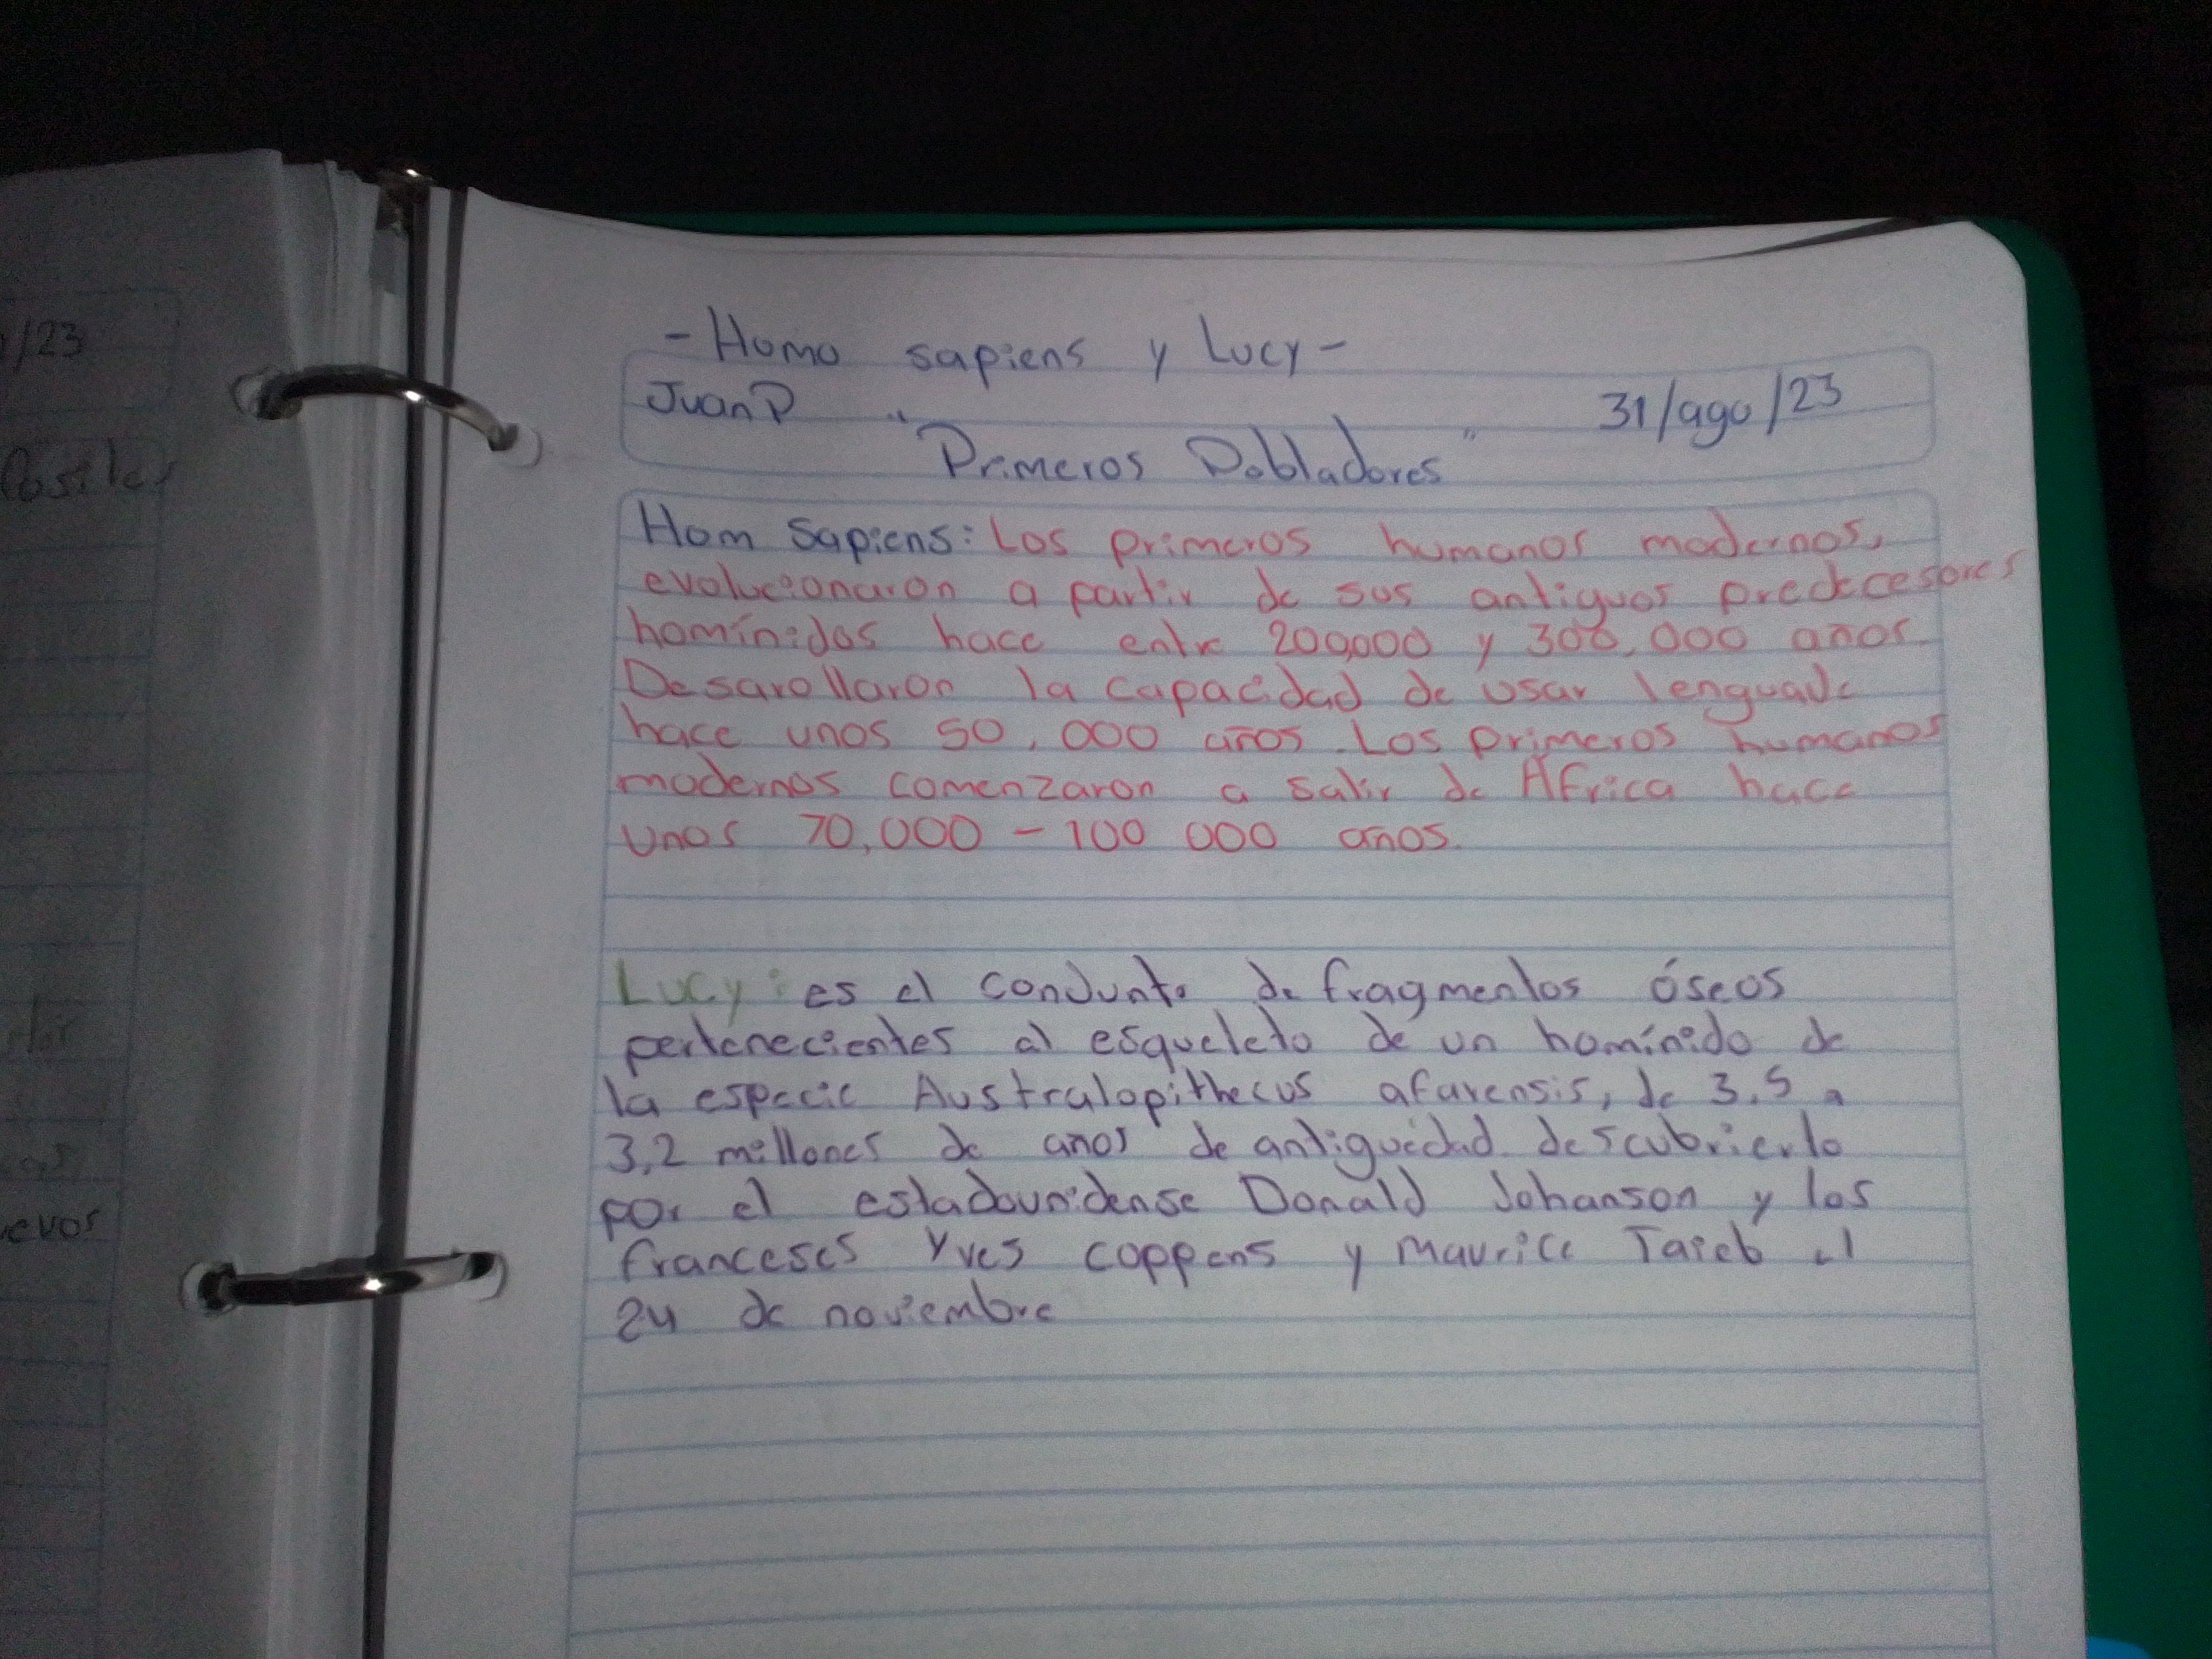 - Homo sapiens y Lucy -
JuanP 31/ago/23
"Primeros Pobladores"
Hom Sapiens: Los primeros humanos modernos,
evolucionaron a partir de sus antiguos predecesores
homínidos hace entre 200,000 y 300,000 años.
Desarollaron la capacidad de usar lenguaje
hace unos 50,000 años. Los primeros humanos
modernos comenzaron a salir de Africa hace
unos 70,000 - 100 000 años.
Lucy: es el conjunto de fragmentos óseos
pertenecientes al esqueleto de un homínido de
la especie Australopithecus afarensis, de 3.5 a
3,2 millones de años de antiguedad. descubrierto
por el estadounidense Donald Johanson y los
franceses Yves coppens y Maurice Taieb el
24 de noviembre
/23
evos